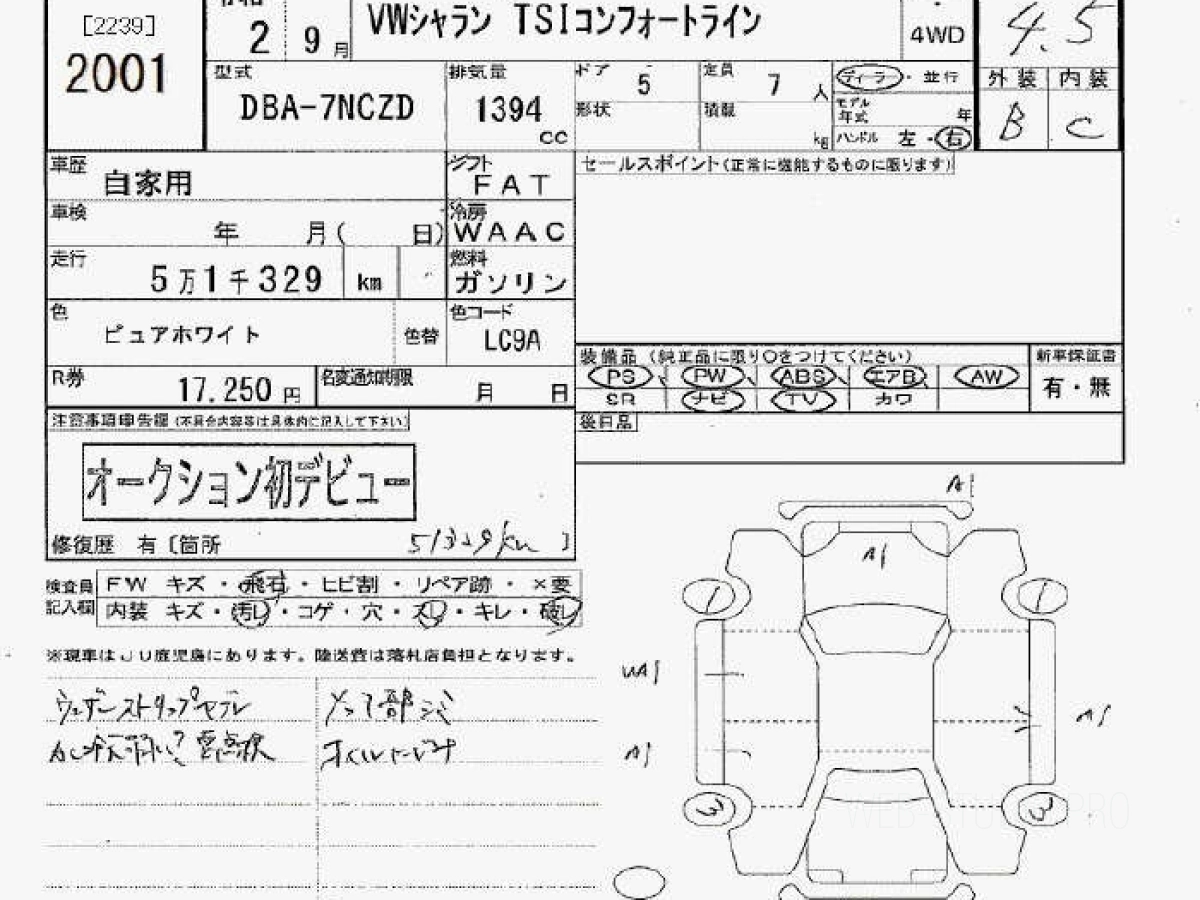 [2239]
2001
2 9 月
VWシャラン TSIコンフォートライン
4WD
4.5
型式
DBA-7NCZD
排気量
1394
cc
ドア 5
定員 7 人
形状
積載 kg
ディーラ・並行
モデル年式 年
ハンドル 左・右
外装 内装
B C
車歴
自家用
シフト
FAT
セールスポイント(正常に機能するものに限ります)
車検
年 月( 日)
冷房
WAAC
走行
5万1千329 km
燃料
ガソリン
色
ピュアホワイト
色替
色コード
LC9A
R券
17.250 円
名変通知期限
月 日
装備品 (純正品に限り○をつけてください)
PS PW ABS エアB AW
SR ナビ TV カワ
新車保証書
有・無
後日品
注意事項申告欄(不具合内容等は具体的に記入して下さい)
オークション初デビュー
修復歴 有〔箇所 51329km 〕
検査員記入欄
FW キズ・飛石・ヒビ割・リペア跡・×要
内装 キズ・汚レ・コゲ・穴・スレ・キレ・破レ
※現車はJU鹿児島にあります。陸送費は落札店負担となります。
ウェザーストリップ
要点検
A1
A1
UA1
A1
A1
WEB
PRO